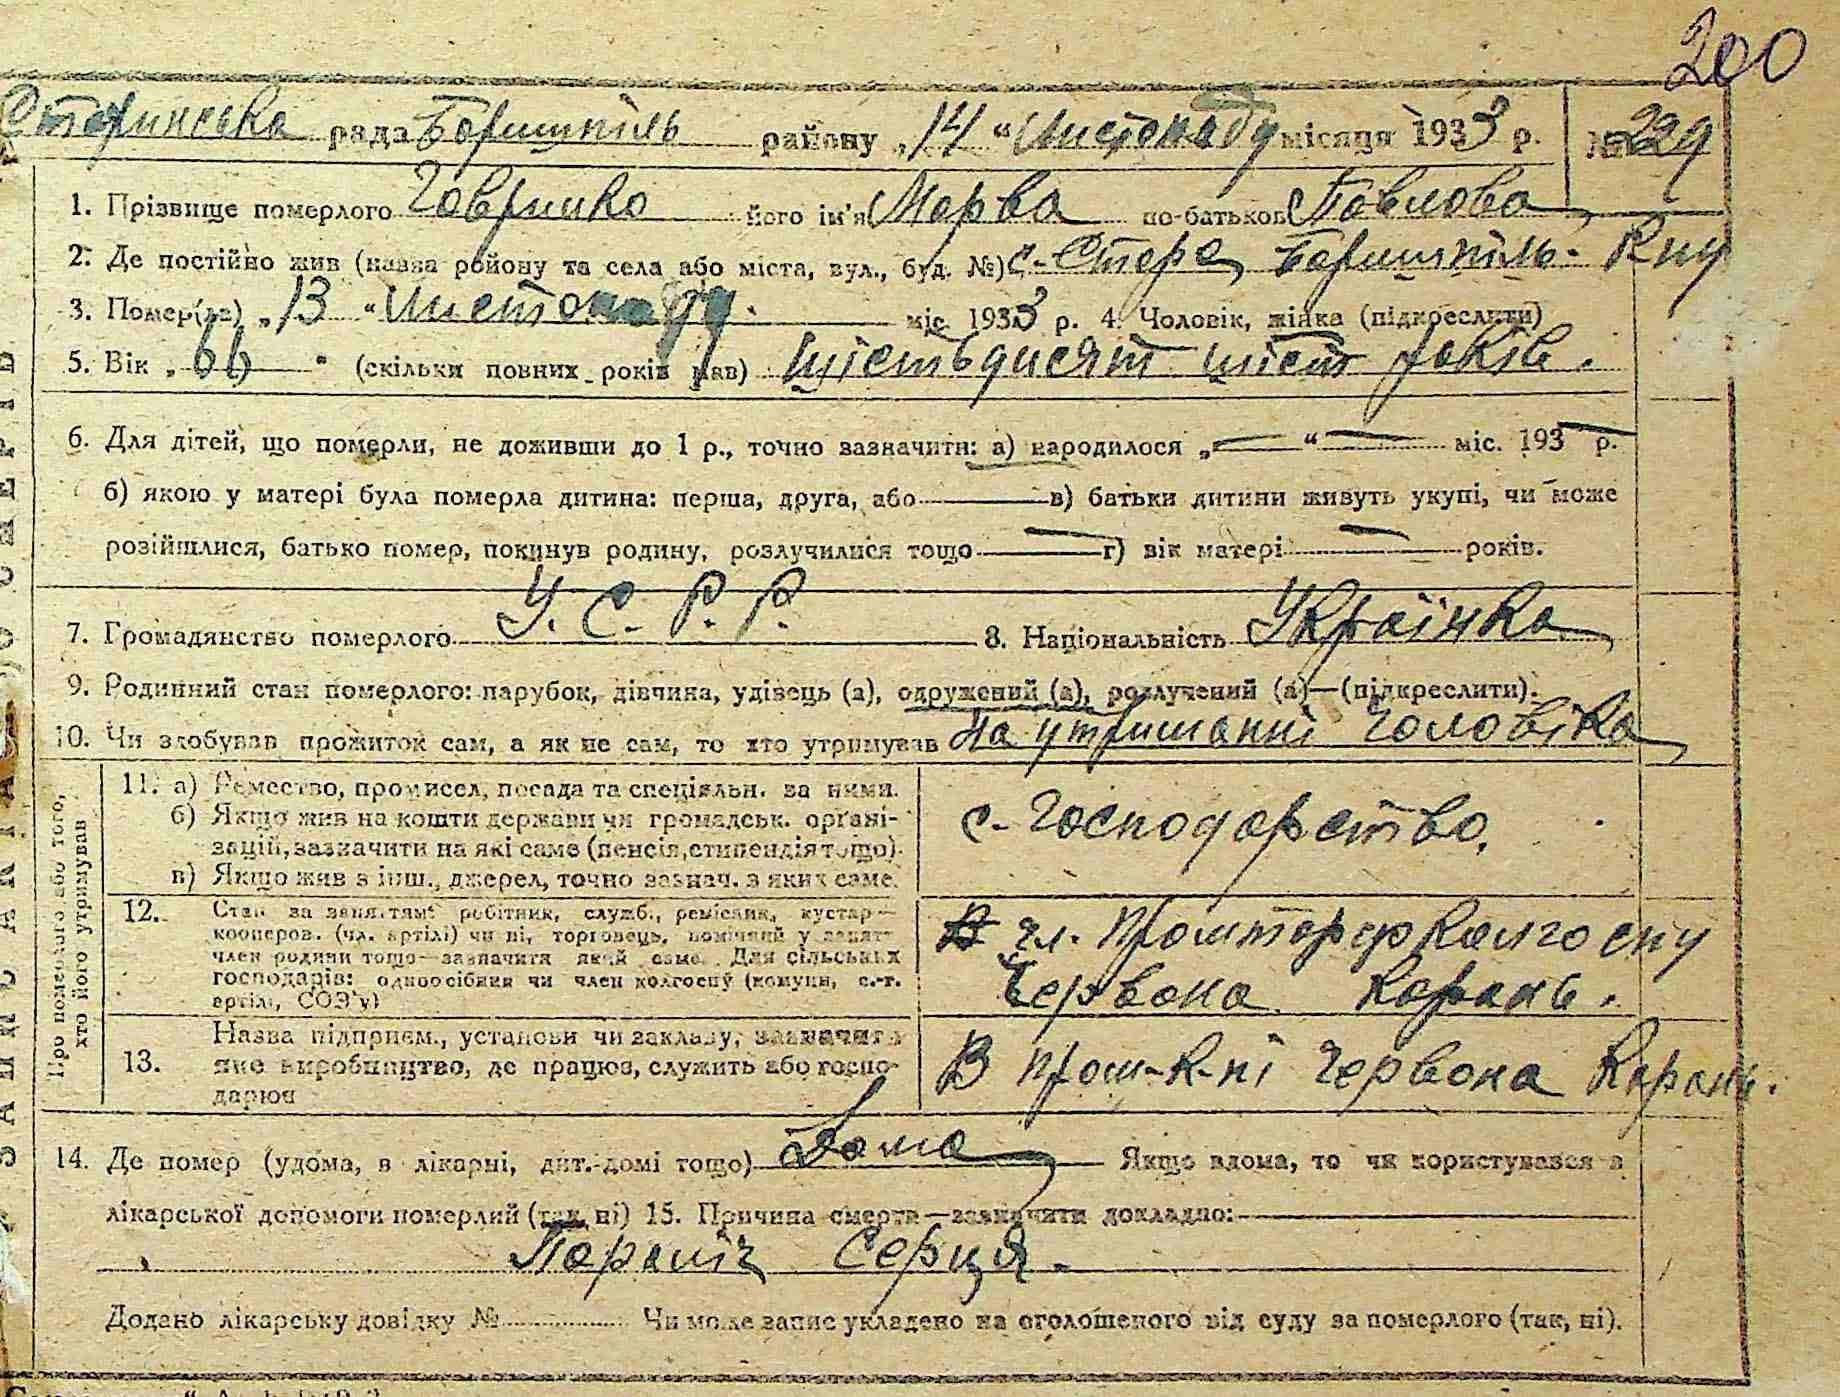 200
Старинська рада Баришпіль району „14“ Листопаду місяця 1933 р. № 229
1. Прізвище померлого Говришко його ім'я Марва по-батькові Павлова
2. Де постійно жив (назва району та села або міста, вул., буд. №) с. Стара, Баришпіль. Р-ну
3. Помер(ла) „13“ Листопаду міс. 1933 р. 4. Чоловік, жінка (підкреслити)
5. Вік „66“ (скільки повних років мав) шістьдисят шіст років.
6. Для дітей, що померли, не доживши до 1 р., точно зазначити: а) народилося „—“ — міс. 193— р.
б) якою у матері була померла дитина: перша, друга, або — в) батьки дитини живуть укупі, чи може
розійшлися, батько помер, покинув родину, розлучилися тощо — г) вік матері — років.
7. Громадянство померлого У. С. Р. Р. 8. Національність Українка
9. Родинний стан померлого: парубок, дівчина, удівець (а), одружений (а), розлучений (а)—(підкреслити).
10. Чи здобував прожиток сам, а як не сам, то хто утримував На утриманні чоловіка
Про померлого або того,
хто його утримував
11. а) Ремество, промисел, посада та спеціяльн. за ними.
б) Якщо жив на кошти держави чи громадськ. організацій, зазначити на які саме (пенсія, стипендія тощо).
в) Якщо жив з інш., джерел, точно зазнач. з яких саме.
с-господарство.
12. Стан за заняттям: робітник, служб., ремісник, кустар—
кооперов. (чл. артілі) чи ні, торговець, помічний у занятт.
член родини тощо—зазначити який саме. Для сільських
господарів: одноосібник чи член колгоспу (комуни, с.-г.
артілі, СОЗ'у)
чл. колгоспу
Червона Карань.
13. Назва підприєм., установи чи закладу, зазначити
яке виробництво, де працює, служить або госпо-
дарює
В пром-к-пі Червона Карань.
14. Де помер (удома, в лікарні, дит.-домі тощо) Дома Якщо вдома, то чи користувався в
лікарської допомоги померлий (так, ні) 15. Причина смерти—зазначити докладно:
Параліч Серця.
Додано лікарську довідку № Чи може запис укладено на оголошеного від суду за померлого (так, ні).